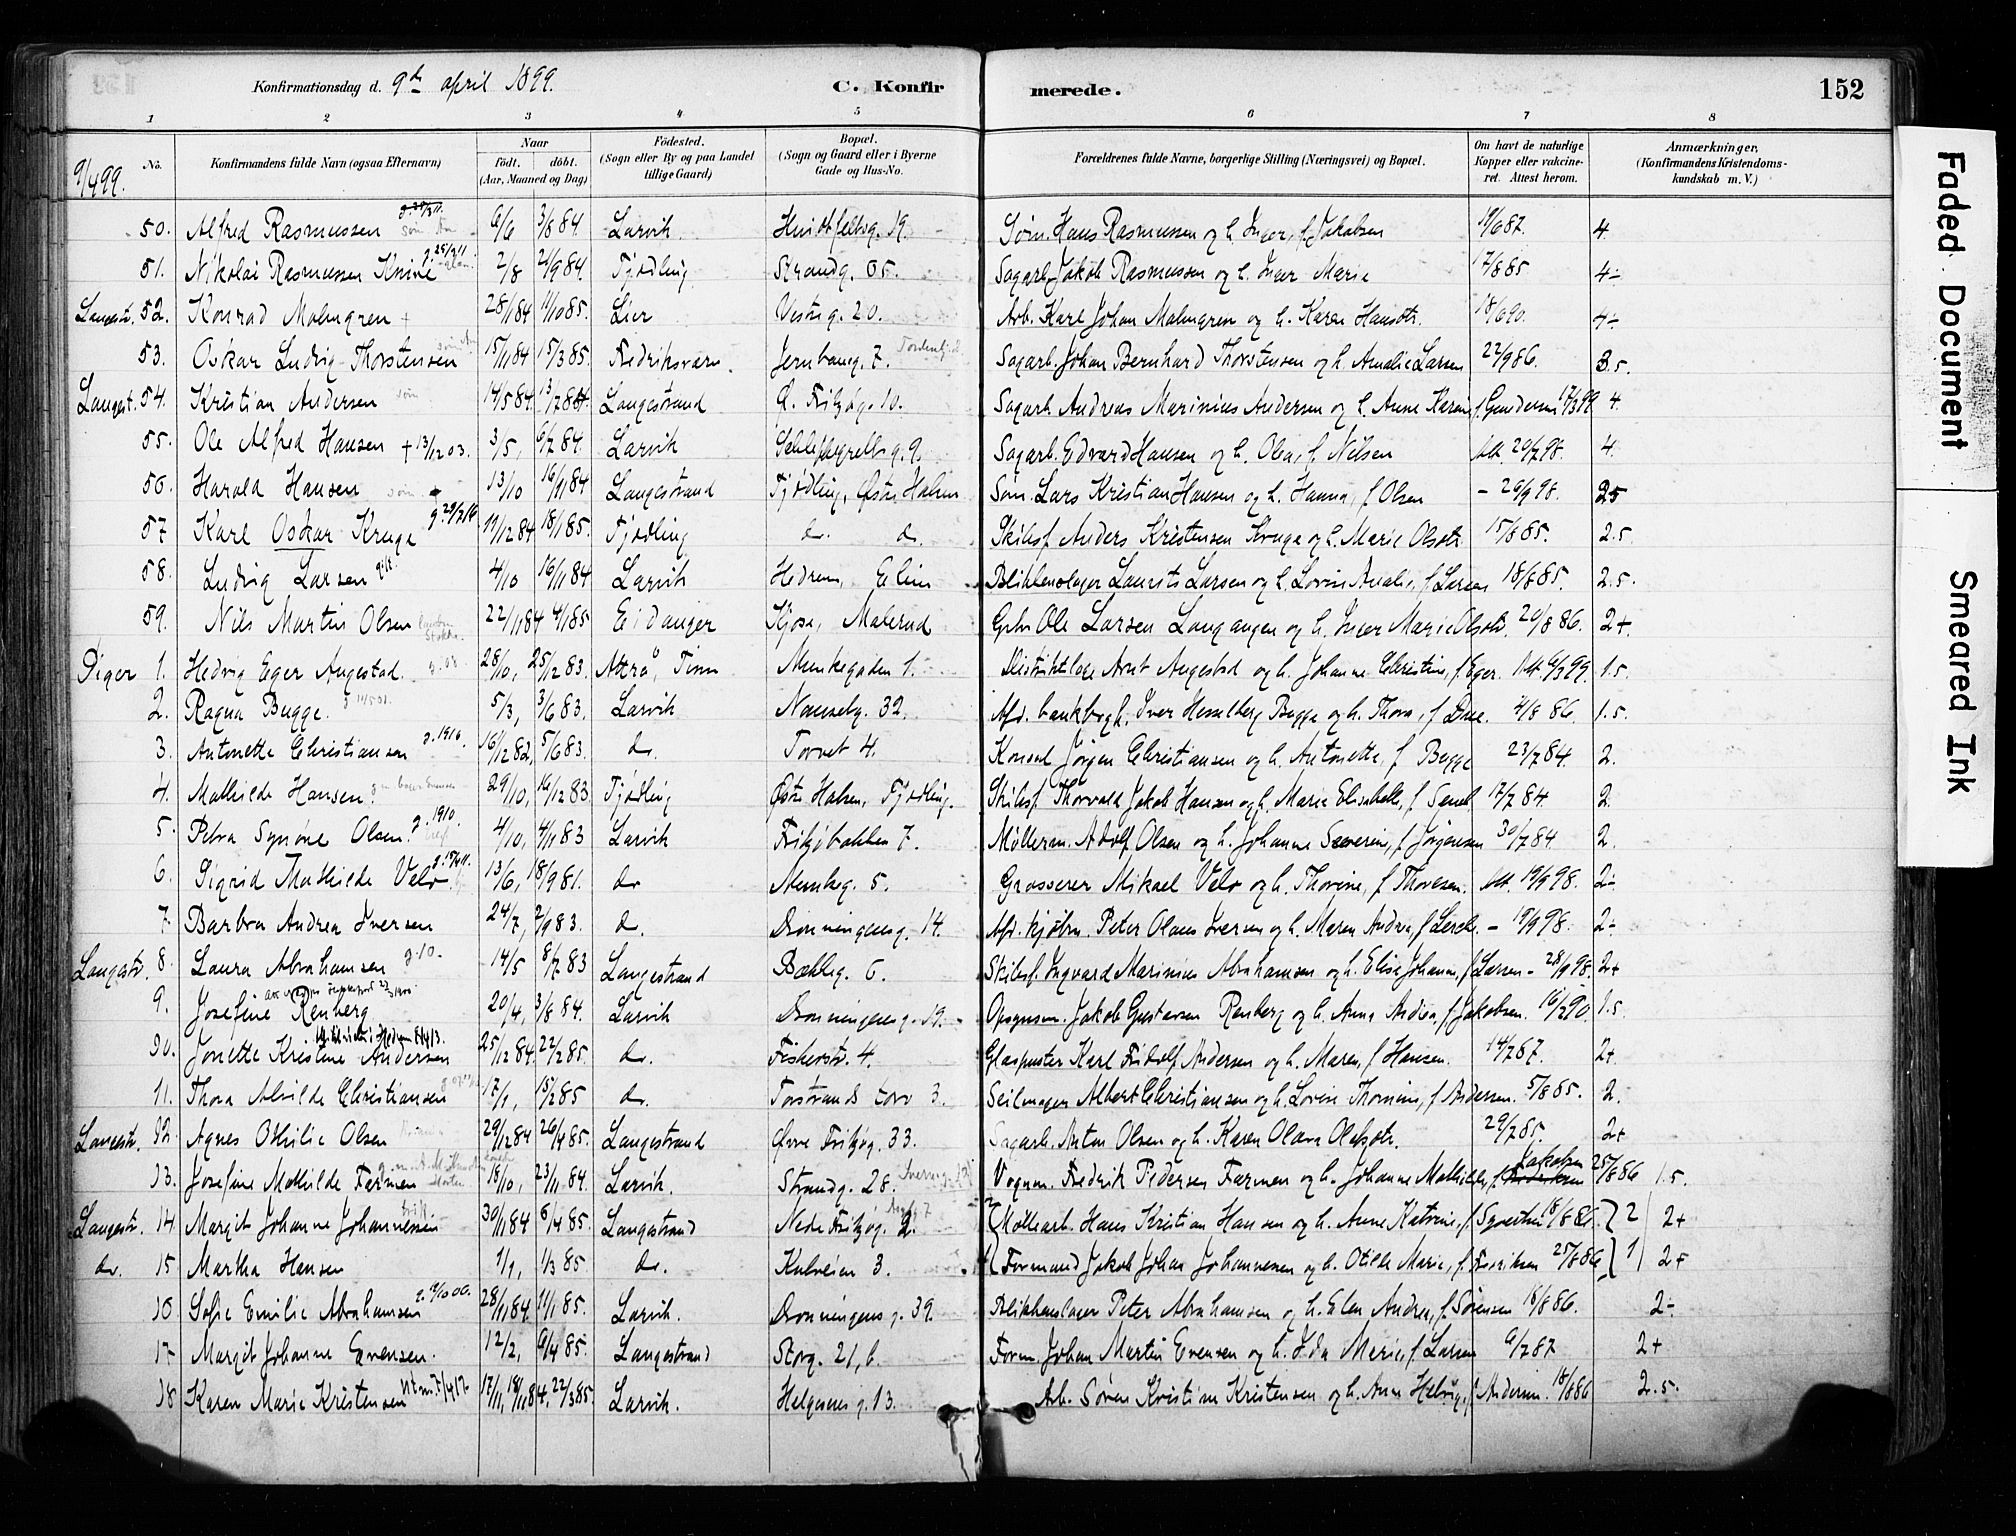 Konfirmationsdag d. 9de april 1899. C. Konfirmerede. 152
1 2 3 4 5 6 7 8
No. Konfirmandens fulde Navn (ogsaa Efternavn) Naar født. døbt. (Aar, Maaned og Dag) Fødested. (Sogn eller By og paa Landet tillige Gaard) Bopæl. (Sogn og Gaard eller i Byerne Gade og Hus-No. Forældrenes fulde Navne, borgerlige Stilling (Næringsvei) og Bopæl. Om havt de naturlige Kopper eller vakcineret. Attest herom. Anmærkninger, (Konfirmandens Kristendomskundskab m. V.)
9/4 99.
50. Alfred Rasmussen 6/6 3/8 84 Larvik. 19. Søm. Hans Rasmussen og h. Inger, f. Jakobsen 19/6 87. 4.
51. Nikolai Rasmussen 2/8 21/9 84. Tjødling Strandg. 65. Sagarb. Jakob Rasmussen og h. Inger Marie 17/8 85 4-
Langestr. 52. Konrad Malmgren + 28/1 84 11/10 85. Lier Vestreg. 20. Arb. Karl Johan Malmgren og h. Karen Hansdtr. 18/6 90. 4-
53. Oskar Ludvig Thorstensen 15/11 84 15/3 85. Fredriksværn. Jernbaneg. 7. Sagarb. Johan Bernhard Thorstensen og h. Amalie Larsen 22/9 86. 3.5.
Langest. 54. Kristian Andersen 14/5 84. 13/7 84 Langestrand Ø. Fritzøg. 10. Sagarb. Andreas Marinius Andersen og h. Anne Karen f. Gundersen 17/3 99 4.
55. Ole Alfred Hansen + 13/12 03. 3/5, 6/7 84. Larvik 9. Sagarb. Edvard Hansen og h. Olea, f. Nilsen Att. 20/7 98. 4.
56. Harald Hansen 13/10 16/11 84 Langestrand Tjødling, Østre Halsen Søm. Lars Kristian Hansen og h. Hanna, f. Olsen - 26/9 98. 25
57 Karl Oskar Kruge 19/12 84 18/1 85. Tjødling d. d. Skibsf. Anders Kristensen Kruge og h. Marie Olsdtr. 15/8 85. 2.5.
58. Ludvig Larsen 4/10 16/11 84 Larvik Hedrum, Blikkenslager Laurits Larsen og h. Lovise Amalie, f. Larsen 18/7 85. 2.5.
59. Nils Martin Olsen 22/11 84 4/1 85 Eidanger Kjose, Malerød Ole Larsen Langangen og h. Inger Marie Olsdtr. 20/8 86. 2+.
Piger 1. Hedvig Eger Augestad. 28/10, 25/12 83. Attrå, Tinn Munkegaden 1. Distriktslæge Arnt Augestad og h. Johanne Christine, f. Eger. Att. 6/3 99. 1.5.
2. Ragna Bugge. 5/3, 3/6 83. Larvik Nanseteg. 32. Afd. bankbogh. Iver Hesselberg Bugge og h. Thora, f. Due. 4/8 86. 1.5.
3. Antonette Christiansen g. 1916. 16/12 82, 5/6 83. d. Torvet 4. Konsul Jørgen Christiansen og h. Antonette, f. Bugge 23/7 84. 2.
4. Mathilde Hansen. 29/10, 16/12 83 Tjødling Østre Halsen, Tjødling. Skibsf. Thorvald Jakob Hansen og h. Marie Elisabeth, f. 17/7 84. 2.
5. Petra Synøve Olsen. g. 1910. 4/10, 4/11 83 Larvik Fritzøbakken 7. Møllerm. Adolf Olsen og h. Johanne Severine, f. Jørgensen 30/7 84. 2.
6. Sigrid Mathilde Velo 13/6, 18/9 81. d. Munkeg. 5. Grosserer Mikael Velo og h. Thorine, f. Thoresen. Att. 19/9 98. 2-
7 Barbra Andrea Iversen 24/7, 2/9 83. d. Dronningensg. 14. Afd. kjøbm. Peter Olaus Iversen og h. Maren Andrea, f. Lerche. - 19/9 98. 2-
Langestr. 8. Laura Abrahamsen g. 10. 14/5 8/7 83 Langestrand Bækkeg. 6. Skibsf. Ingvard Marinius Abrahamsen og h. Elise Johanne, f. Larsen - 28/9 98. 2+
9. Josefine Renberg 20/4, 3/8 84. Larvik Dronningensg. 19. Opsynsm. Jakob Gustavsen Renberg og h. Anna Andrea, f. Jakobsen. 16/2 90. 1.5.
10. Jonette Kristine Andersen 25/12 84. 22/2 85. d. Fiskerstr. 4. Glaspuster Karl Fridolf Andersen og h. Maren, f. Hansen. 14/7 67. 2+
11. Thora Alvilde Christiansen 17/1, 15/2 85 d. Torstrands torv 3. Seilmager Albert Christiansen og h. Lovise Thomine, f. Andersen. 5/8 85. 2.
Langestr. 12. Agnes Othilie Olsen 29/12 84 26/4 85. Langestrand Øvre Fritzøg. 33. Sagarb. Anton Olsen og h. Karen Olava Olafsdtr. 29/7 85. 2+
13. Josefine Mathilde Farmen 18/10, 23/11 84. Larvik. Strandg. 28. Vognm. Fredrik Pedersen Farmen og h. Johanne Mathilde, f. Jakobsen 25/8 86 1.5.
Langestr. 14. Margit Johanne Johannessen 30/11 84 6/4 85. Langestrand Nedre Fritzøg. 2. Møllearb. Hans Kristian Hansen og h. Anne Katrine, f. 18/8 86. } 2 2+
d. 15 Martha Hansen 1/1, 1/3 85 d. Kulveien 3. Formand Jakob Johan Johannessen og h. Otilie Marie, f. 25/8 86 } 1 2+
16 Sofie Emilie Abrahamsen 28/11 84. 11/1 85. Larvik. Dronningensg. 39. Blikkenslager Peter Abrahamsen og h. Elen Andrea, f. Sørensen 18/8 86. 2-
17 Margit Johanne Evensen. 12/2, 6/4 85. Langestrand Storg. 21, b. Form. Johan Martin Evensen og h. Ida Marie, f. Larsen 6/7 87 2+
18 Karen Marie Kristensen 17/11, 18/11 84, 22/3 85. Larvik. Helgesens g. 13. Arb. Søren Kristian Kristensen og h. Anne Helvig, f. Andersen. 18/8 86 2.5.
Faded Document
Smeared Ink